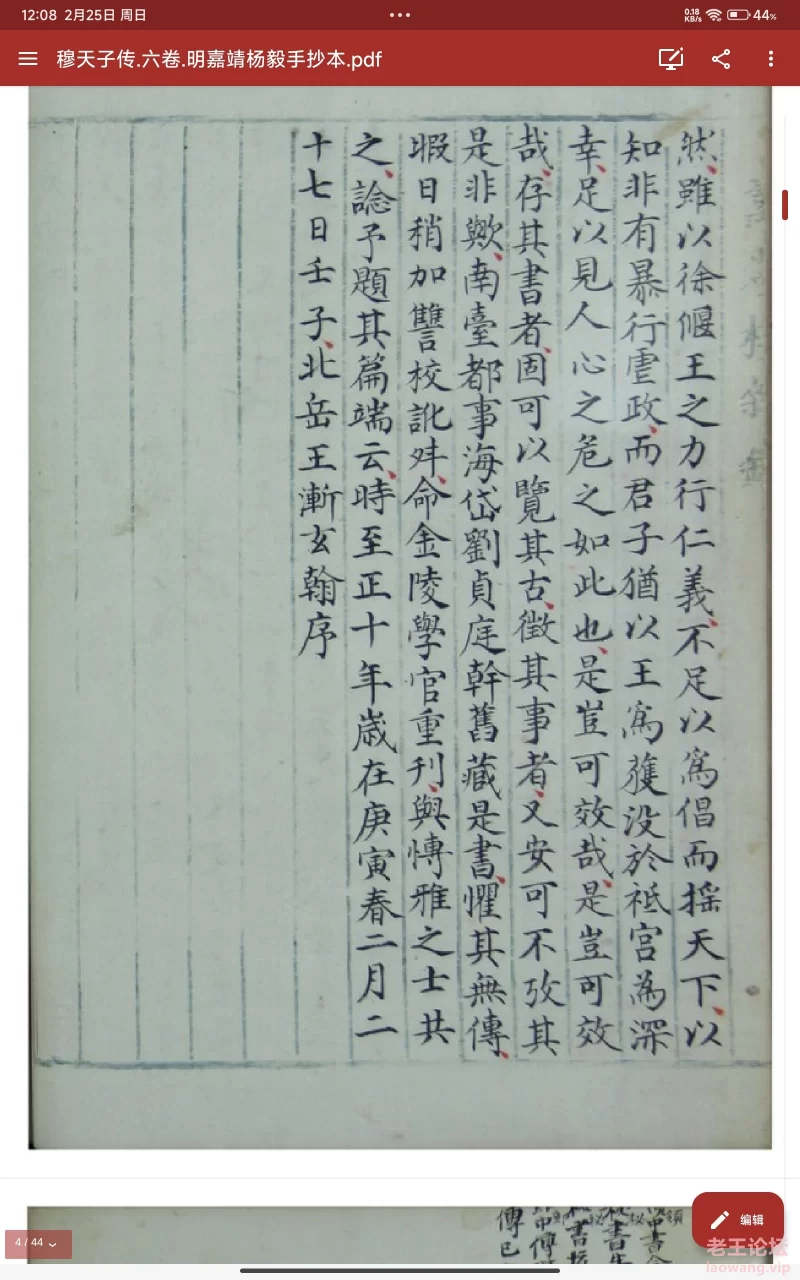 12:08 2月25日 周日
0.18 KB/s
44%
穆天子传.六卷.明嘉靖杨毅手抄本.pdf
然、雖以徐偃王之力行仁義、不足以爲倡而揺天下、以
知非有暴行虐政、而君子猶以王爲獲没於祗宫為深
幸、足以見人心之危之如此也、是豈可效哉、是豈可效
哉、存其書者、固可以覽其古、徴其事者、又安可不攷其
是非歟、南臺都事海岱劉貞庭幹舊藏是書、懼其無傳、
暇日稍加讐校訛舛、命金陵學官重刊、與愽雅之士共
之、諗予題其篇端云、時至正十年歳在庚寅春二月二
十七日壬子、北岳王漸玄翰序
4 / 44
编辑
老王论坛
laowang.vip